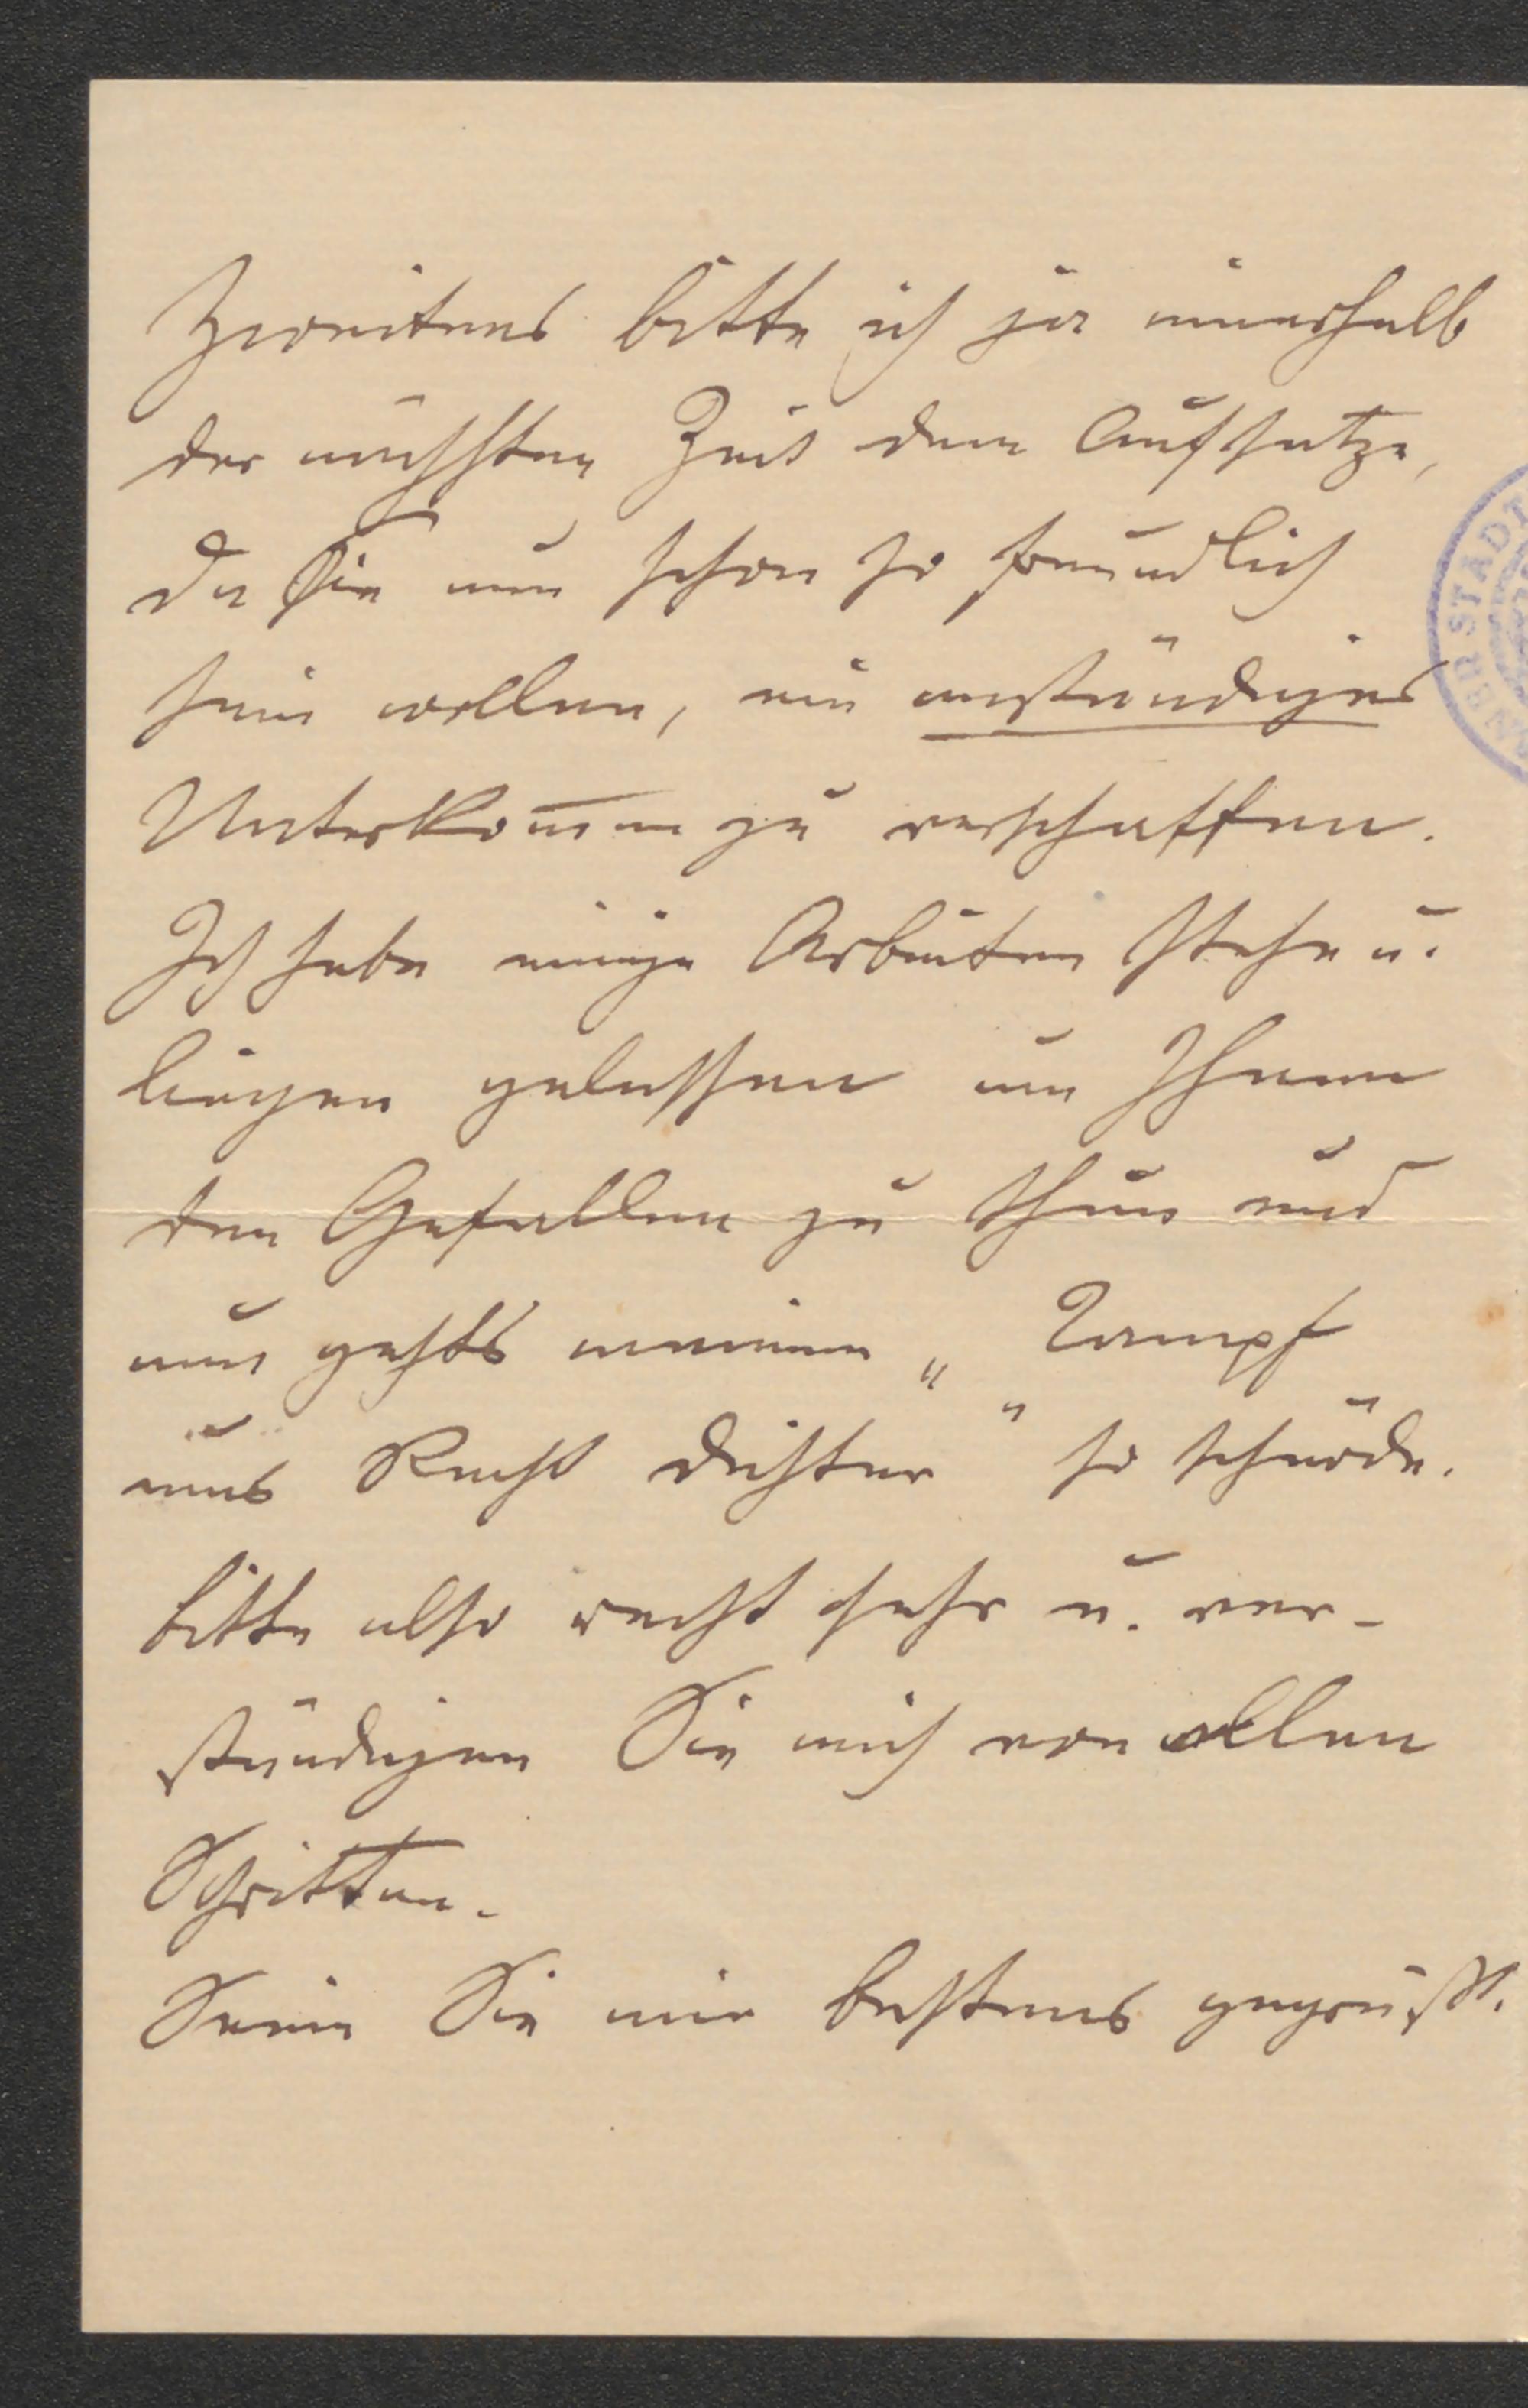 Zweitens bitte ich ja innerhalb
der nächsten Zeit dem Aufsatze,
da Sie nun schon so freundlich
sein wollen, ein anständiges
Unterkom̅en zu verschaffen.
Ich habe einige Arbeiten stehn u.
liegen gelassen um Ihnen
den Gefallen zu thun und
nun gehts meinem „
ums Recht Dichter“ so schnöde.
bitte also recht sehr u. ver-
ständigen Sie mich von allen
Schritten.
Seien Sie mir bestens gegrüßt.
STADT